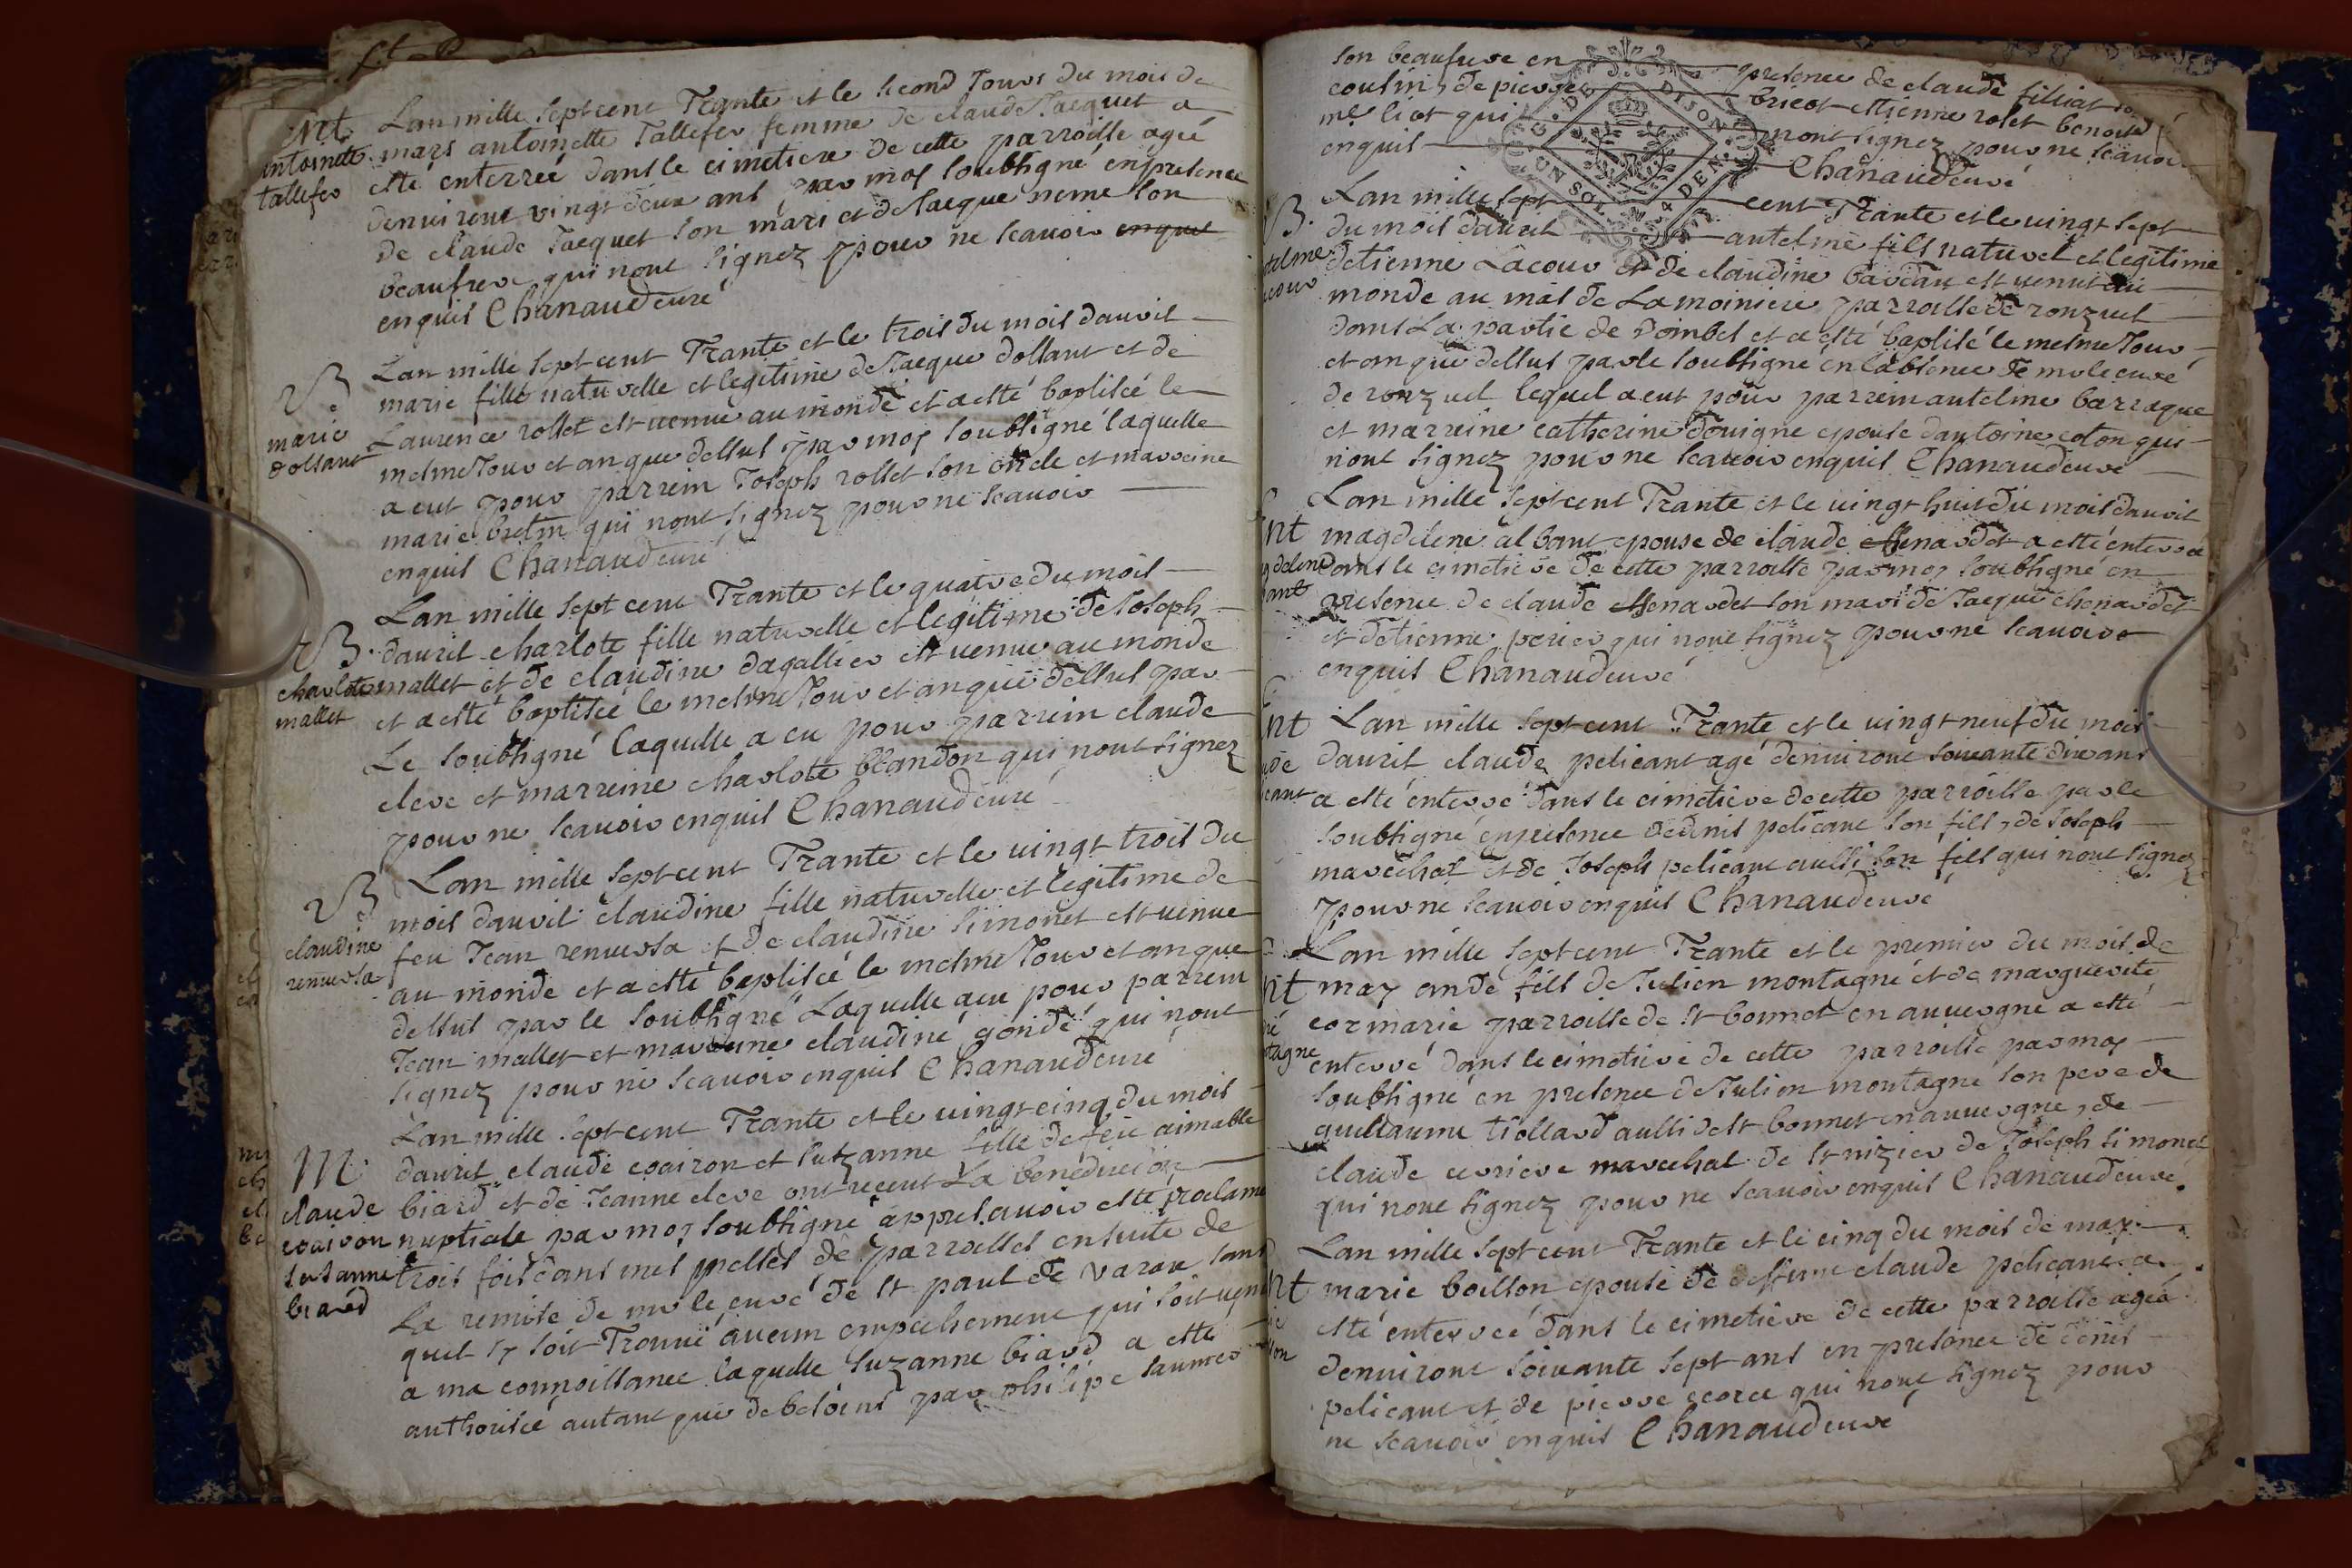 Nt
antoinette
tallefer
Lan mille sept cent Trante et le second Jour du mois de
mars antoinette Tallefer femme de claude Jacquet a
esté enterreé dans le cimetiere de cette parroisse ageé
denuiront vingt deux ans par moy soubsigné en presence
de claude Jacquet son mari et de Jacque neme son
beaufrere qui nont signez pour ne scauoir enquis
enquis Chanaud curé
B
marie
dossant
Lan mille sept cent Trante et le trois du mois dauril
marie fille naturelle et legitime de Jacque dossant et de
Laurence rollet est uenue au monde et a esté baptiseé le
mesme Jour et an que dessus par moy soubsigné laquelle
a eut pour parrein Joseph rollet son oncle et marreine
marie bretin qui nont signez pour ne scauoir
enquis Chanaud curé
B.
charlote
mallet
Lan mille sept cent Trante et le quatre du mois
dauril charlote fille naturelle et legitime de Joseph
mallet et de claudine dagallier est uenue au monde
et a esté baptiseé le mesme Jour et an que dessus par
Le soubsigné Laquelle a eu pour parrein claude
cleve et marreine charlote blandon qui nont signez
pour ne scauoir enquis Chanaud curé
B
claudine
renuersa
Lan mille sept cent Trante et le uingt trois du
mois dauril claudine fille naturelle et legitime de
feu Jean renuersa et de claudine simonet est uenue
au monde et a esté baptiseé le mesme Jour et an que
dessus par le soubsigné Laquelle a eu pour parrein
Jean mallet et marreine claudine gondé qui nont
signez pour ne scauoir enquis Chanaud curé
M
claude
coairon
susanne
biard
Lan mille sept cent Trante et le uingt cinq du mois
dauril claude coairon et sutzanne fille de feu aimable
biard et de Jeanne cleve ont receut La benediction
nuptiale par moy soubsigné appres auoir esté proclamé
trois fois dans mes messes de parroisses ensuite de
La remise de mr le curé de st paul de varax sans
quil sy soit Trouué aucun empechement qui soit uenu
a ma connoissance laquelle suzanne biard a esté
authoriseé autant que de besoins par philipe saunier
son beaufrere en presence de claude filliat
cousin, de pierre bricot ettienne rolet benoist
me liot qui nont signez pour ne scauoir
enquis Chanaud curé
G. DE DIJON
UN SOL. 4 DEN.
B.
Lan mille sept cent Trante et le uingt sept
du mois dauril antelme fils naturel et legitime
detienne Lacour et de claudine bardau est uenut au
monde au mas de La moiniere parroisse de ronzuel
dans La partie de Dombes et a esté baptisé le mesme Jour
et an que dessus par le soubsigné en labsence de mr le curé
de ronzuel lequel a eut pour parrein antelme barraque
et marreine catherine Douigne epouse dantoine coton qui
nont signez pour ne scauoir enquis Chanaud curé
Nt
Lan mille sept cent Trante et le uingt huit du mois dauril
magdelene albant epouse de claude chenardet a esté enterreé
dans le cimetiere de cette parroisse par moy soubsigné en
presence de claude chenardet son mari de Jacque chenardet
et detienne perier qui nont signez pour ne scauoir
enquis Chanaud curé
Nt
Lan mille sept cent Trante et le uingt neuf du mois
dauril claude pelicant agé denuiront soixante dix ans
a esté enterré dans le cimetiere de cette parroisse par le
soubsigné en presence de denis pelicant son fils, de Joseph
marechal et de Joseph pelicant aussi son fils qui nont signez
pour ne scauoir enquis Chanaud curé
Nt
Lan mille sept cent Trante et le premier du mois de
may andé fils de Julien montagne et de marguerite
cormarie parroisse de st bonnet en auuergne a esté
enterré dans le cimetiere de cette parroisse par moy
soubsigné en presence de Julien montagne son pere de
guillaume tiollard aussi de st bonnet en auuergne, de
claude curiere marechal de st nizier de Joseph simonet
qui nont signez pour ne scauoir enquis Chanaud curé.
Nt
Lan mille sept cent Trante et le cinq du mois de may
marie boisson epouse de deffunt claude pelicant a
esté enterreé dans le cimetiere de cette parroisse ageé
denuiront soixante sept ans en presence de denis
pelicant et de pierre ecorce qui nont signez pour
ne scauoir enquis Chanaud curé